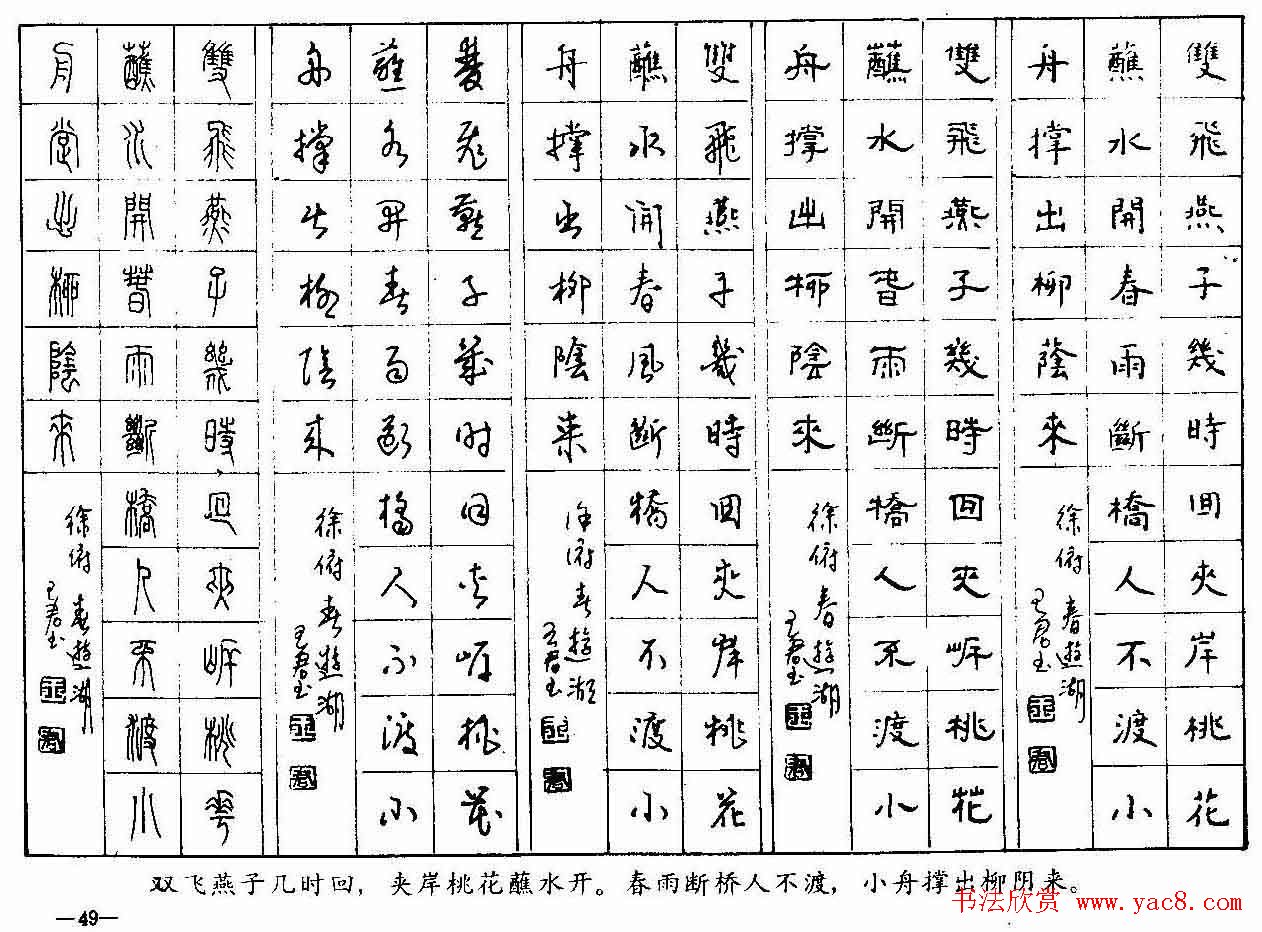 雙飛燕子幾時回夾岸桃花
蘸水開春雨斷橋人不渡小
舟撑出柳蔭來
徐俯 春遊湖
雙飛燕子幾時回夾岸桃花
蘸水開春雨斷橋人不渡小
舟撑出柳陰來
徐俯 春遊湖
雙飛燕子幾時回夾岸桃花
蘸水開春風斷橋人不渡小
舟撑出柳陰來
徐俯 春遊湖
雙飛燕子幾時回夾岸桃花
蘸水開春雨斷橋人不渡小
舟撑出柳陰來
徐俯 春遊湖
雙飛燕子幾時回夾岸桃花
蘸水開春雨斷橋人不渡小
舟掌出柳陰來
徐俯 春遊湖
双飞燕子几时回，夹岸桃花蘸水开。春雨断桥人不渡，小舟撑出柳阴来。
—49—
书法欣赏 www.yac8.com